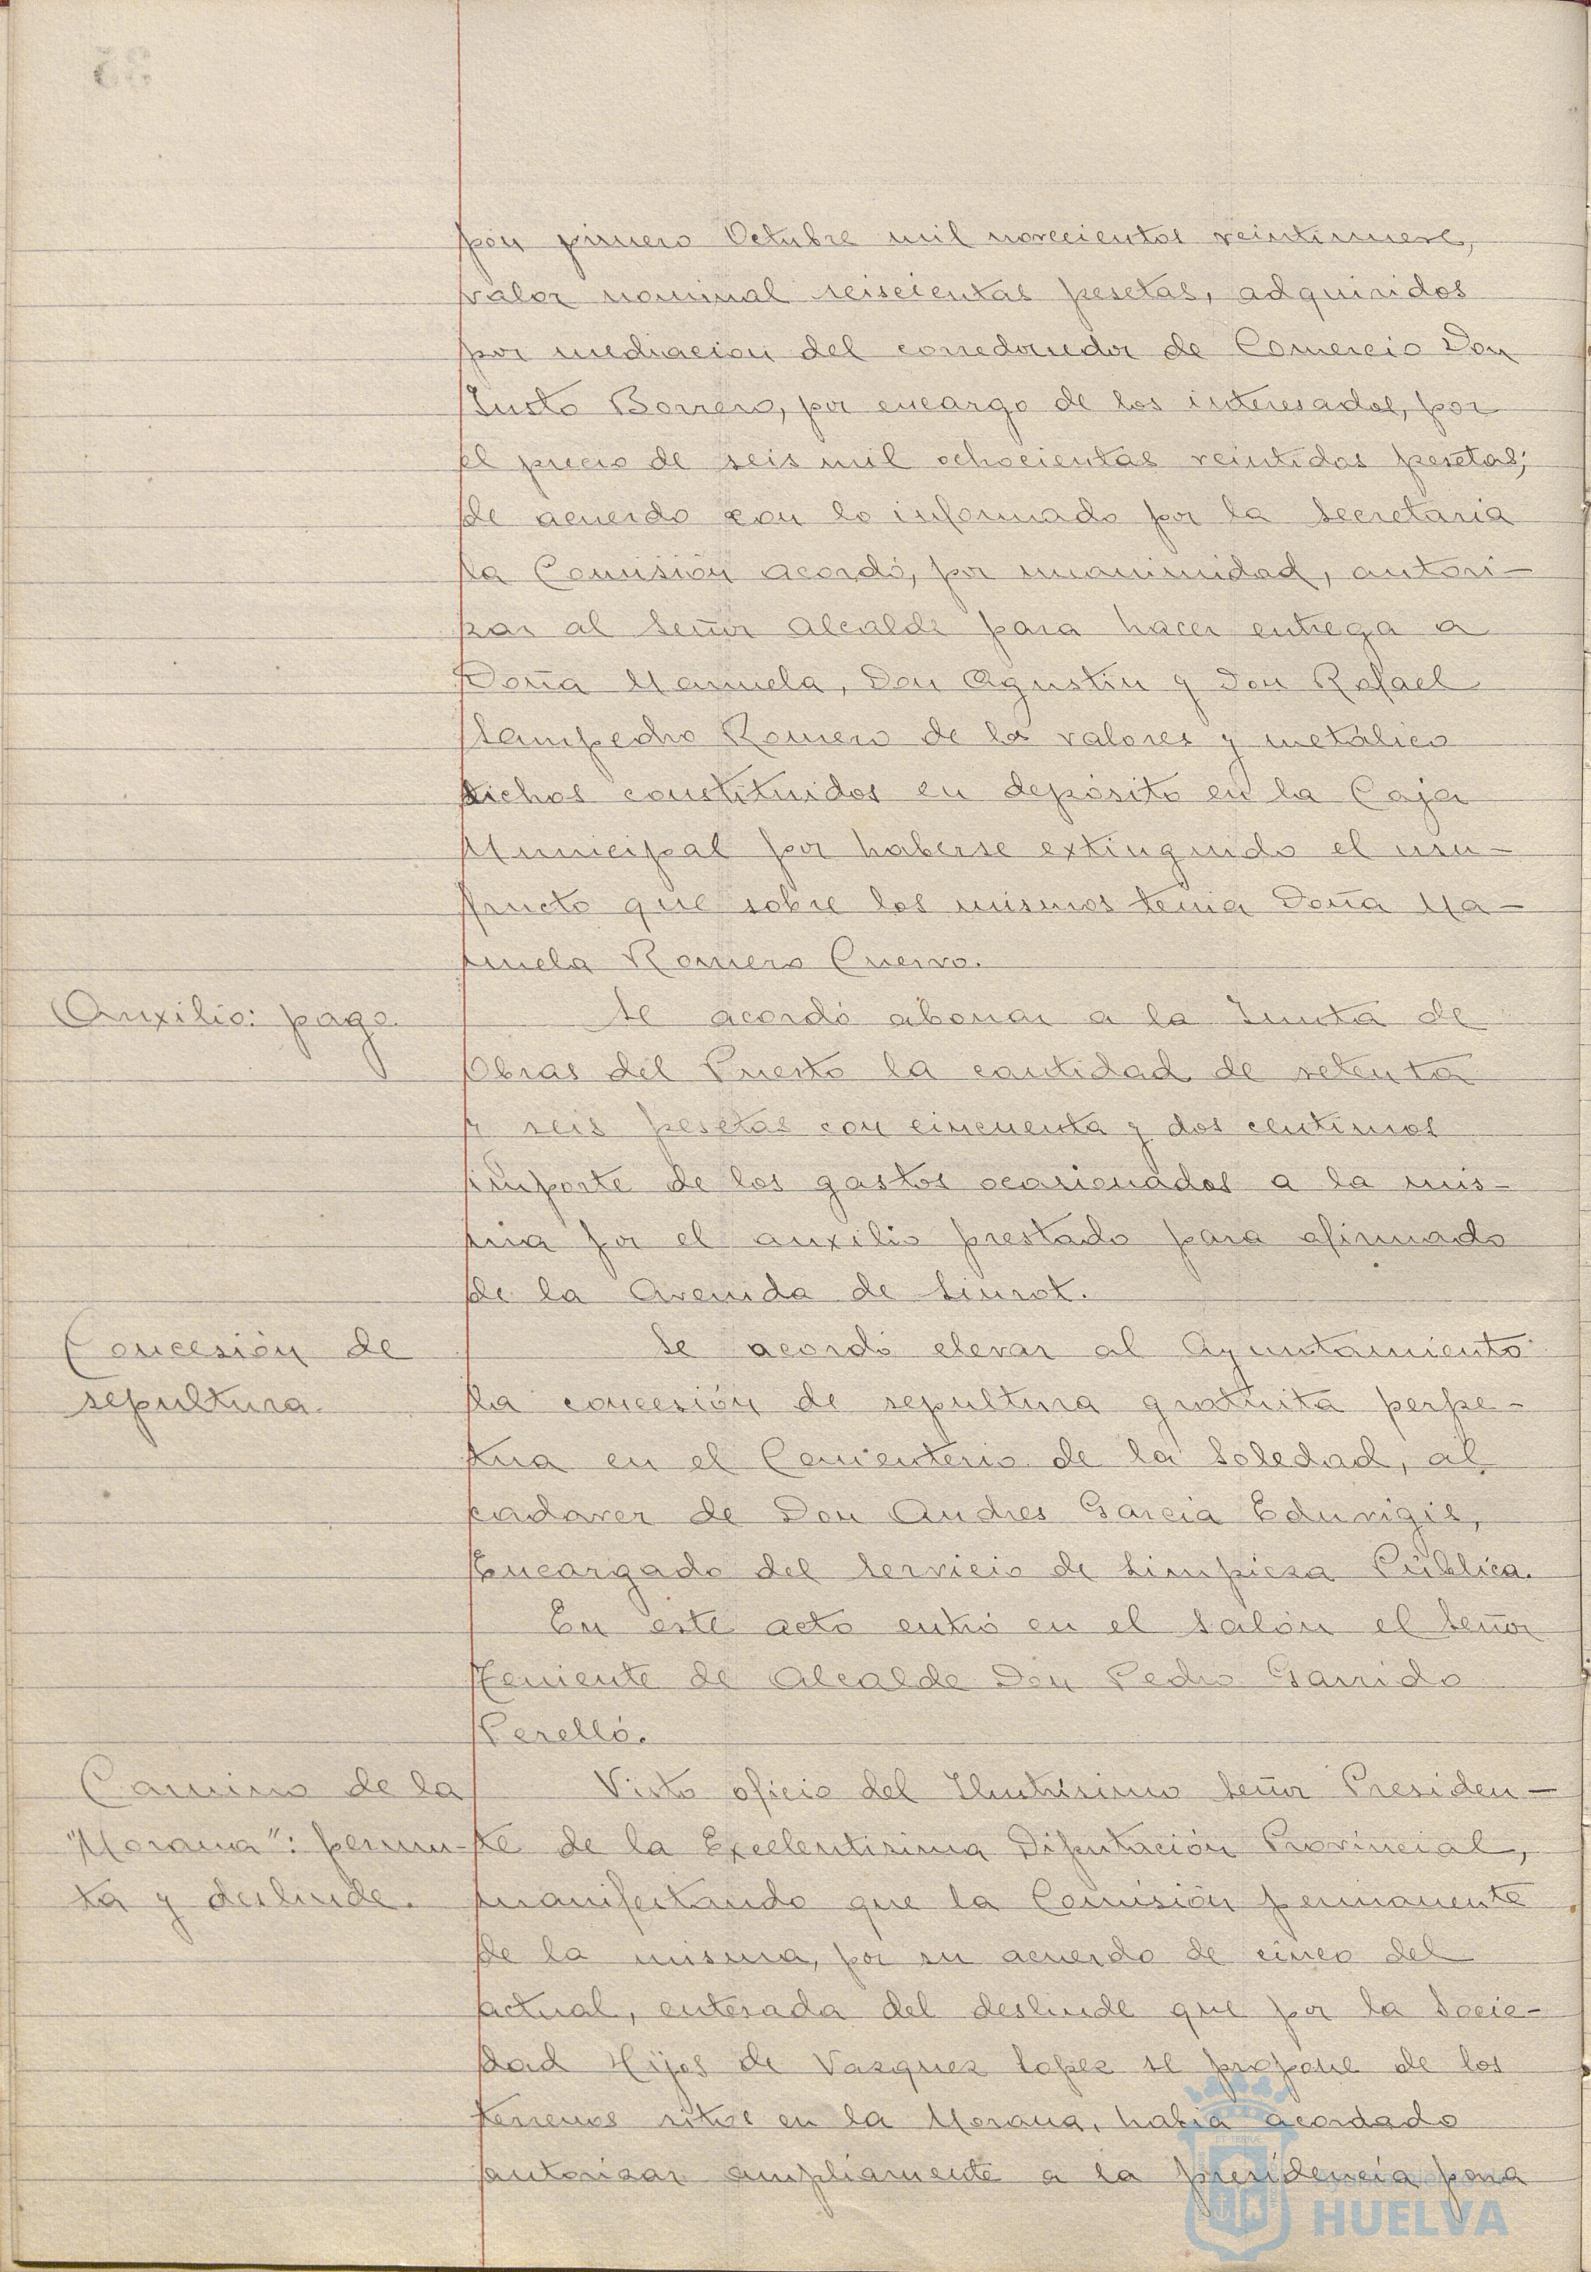 pón primero Octubre mil novecientos veintinueve,
valor nominal seiscientas pesetas, adquiridos
por mediación del corredor de Comercio Don
Justo Borrero, por encargo de los interesados, por
el precio de seis mil ochocientas veintidos pesetas;
de acuerdo con lo informado por la Secretaria
la Comisión acordó, por unanimidad, autori-
zar al Señor Alcalde para hacer entrega a
Doña Manuela, Don Agustín y Don Rafael
Sampedro Romero de los valores y metálico
dichos constituidos en depósito en la Caja
Municipal por haberse extinguido el usu-
fructo que sobre los mismos tenia Doña Ma-
nuela Romero Cuervo.
Auxilio: pago.
Se acordó abonar a la Junta de
Obras del Puerto la cantidad de setenta
y seis pesetas con cincuenta y dos centimos
importe de los gastos ocasionados a la mis-
ma por el auxilio prestado para afirmado
de la Avenida de Siurot.
Concesión de
sepultura.
Se acordó elevar al Ayuntamiento
la concesión de sepultura gratuita perpe-
tua en el Cementerio de la Soledad, al
cadaver de Don Andres Garcia Eduvigis,
Encargado del Servicio de Limpieza Pública.
En este acto entró en el Salón el Señor
Teniente de Alcalde Don Pedro Garrido
Perelló.
Camino de la
"Morana": permu-
ta y deslinde.
Visto oficio del Ilustrisimo Señor Presiden-
te de la Excelentisima Diputación Provincial,
manifestando que la Comisión permanente
de la misma, por su acuerdo de cinco del
actual, enterada del deslinde que por la Socie-
dad Hijos de Vazquez Lopez se propone de los
terrenos sitos en la Morana, habia acordado
autorizar ampliamente a la presidencia para
Ayuntamiento de
HUELVA